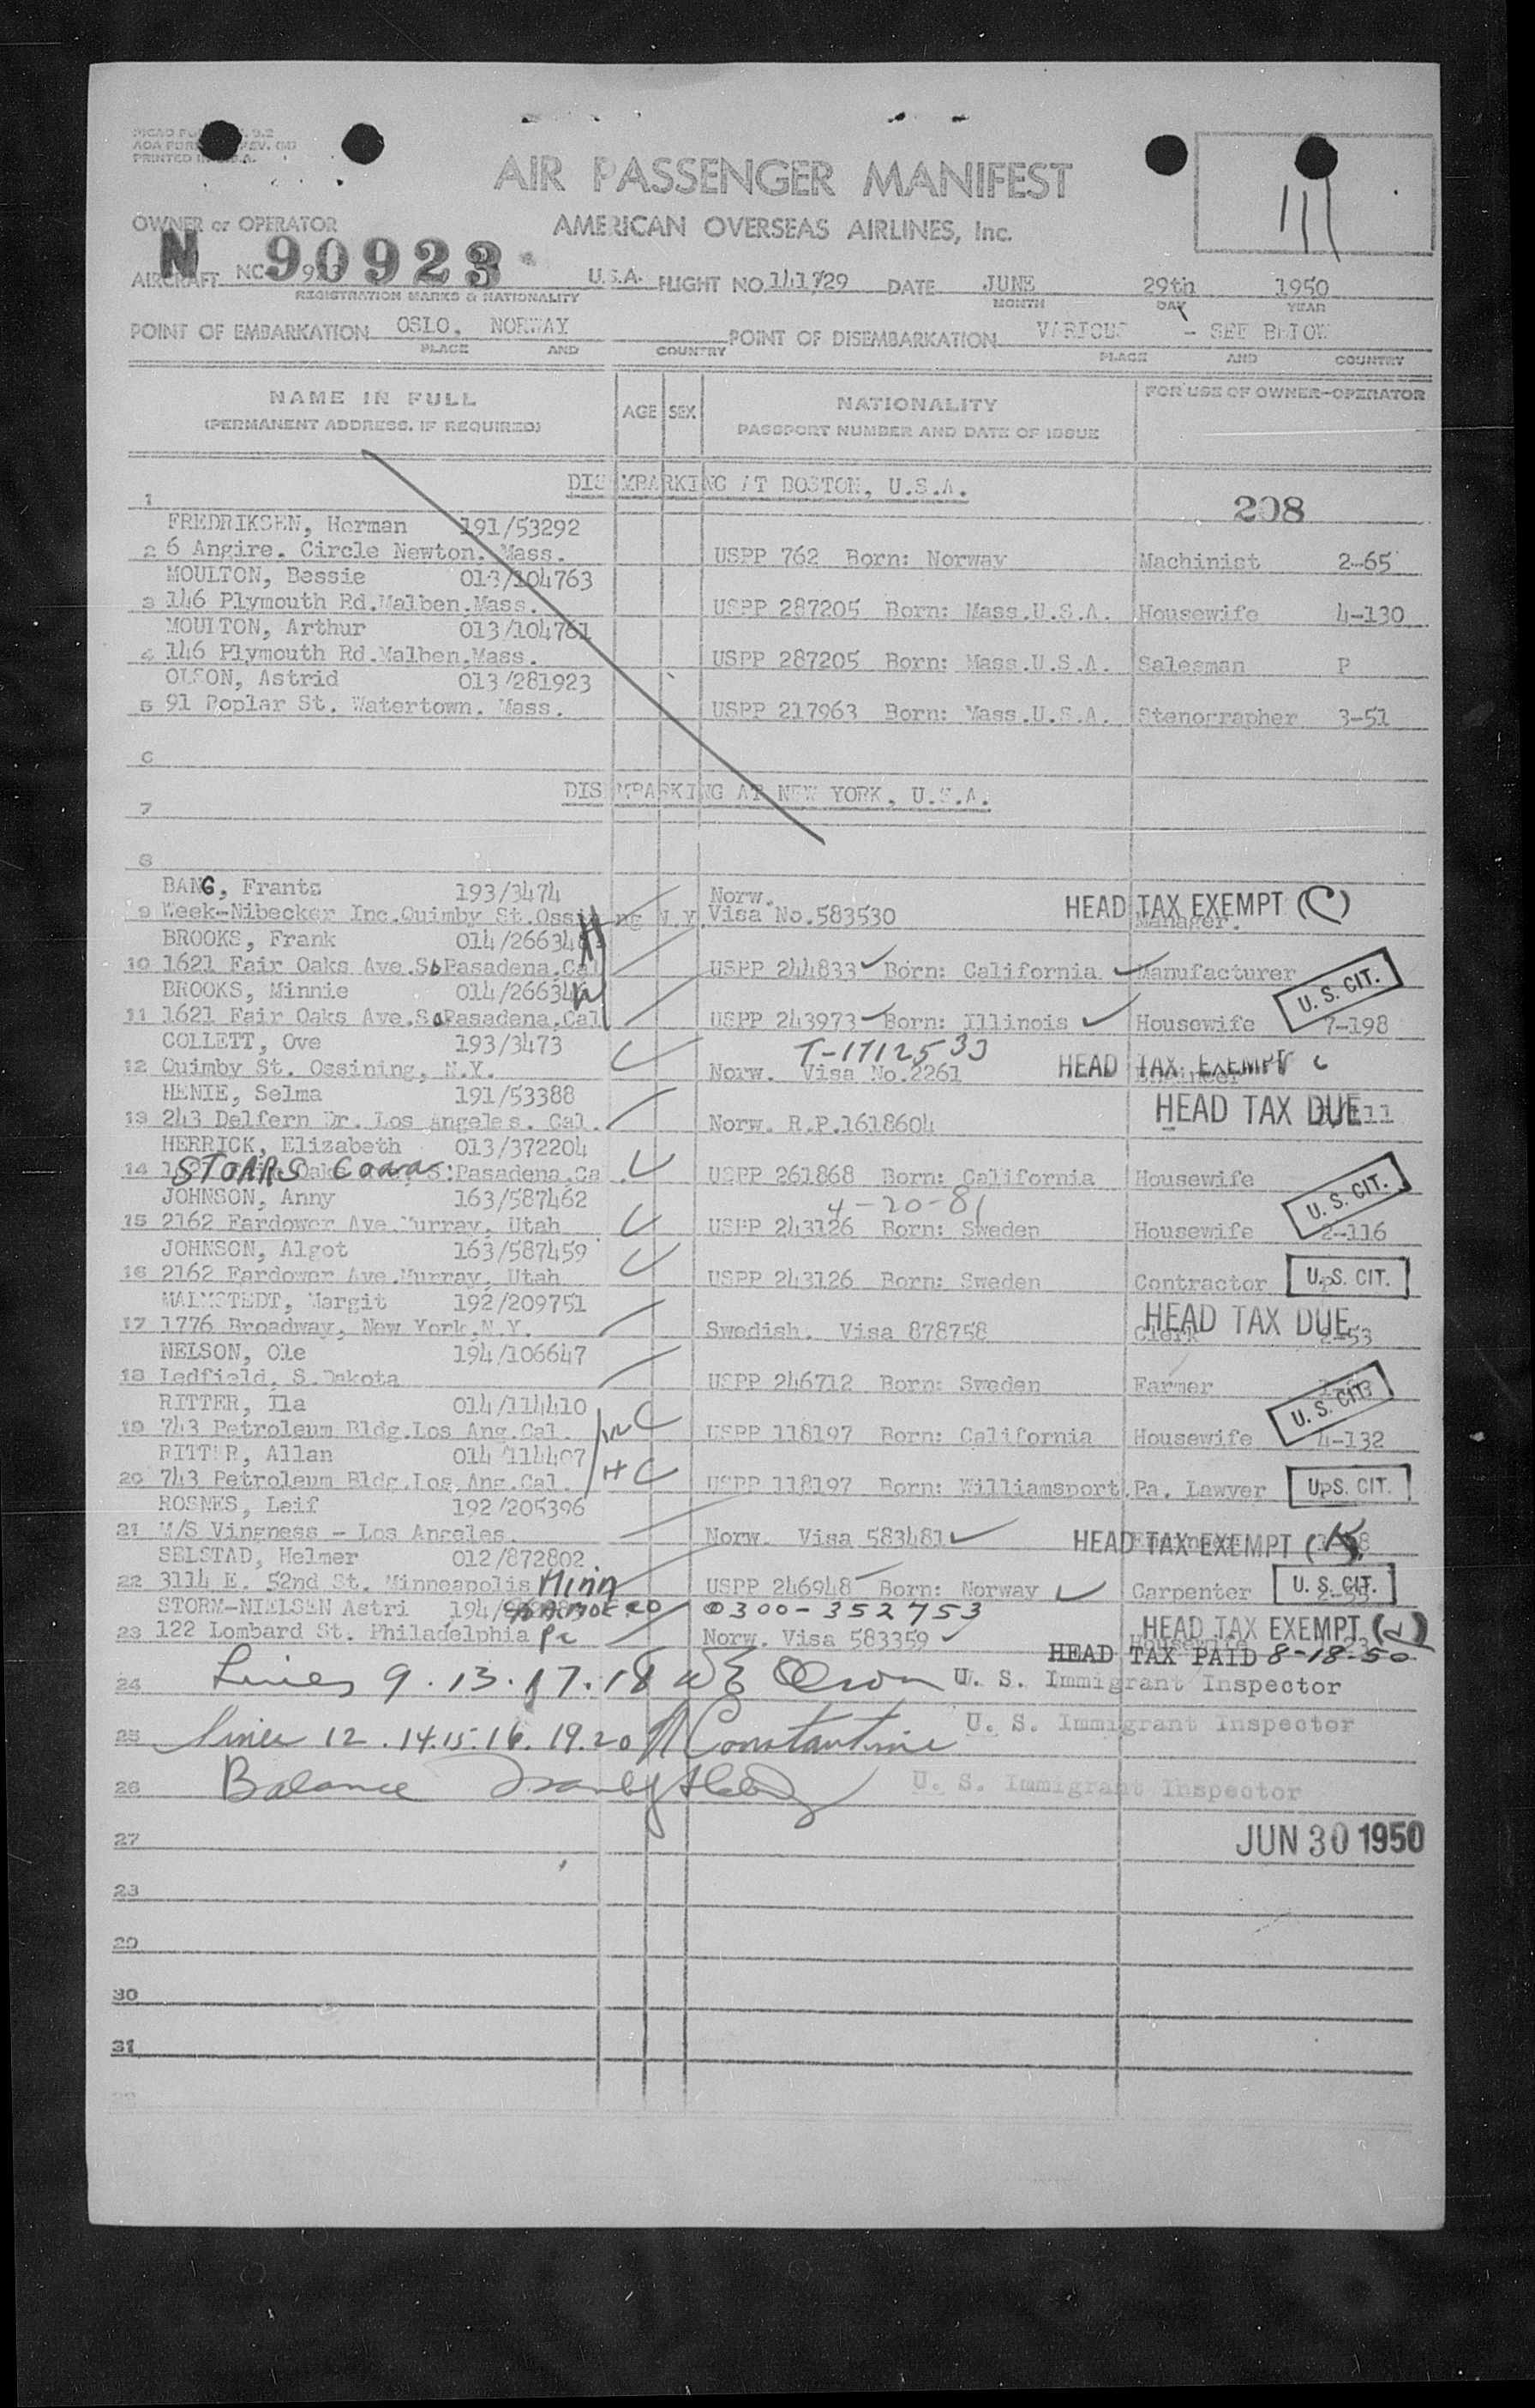 AIR PASSENGER MANIFEST
OWNER or OPERATOR AMERICAN OVERSEAS AIRLINES, Inc.
111
N 90923
AIRCRAFT NC 9 U.S.A. FLIGHT NO. 141/29 DATE JUNE 29th 1950
REGISTRATION MARKS & NATIONALITY MONTH DAY YEAR
POINT OF EMBARKATION OSLO, NORWAY POINT OF DISEMBARKATION VARIOUS - SEE BELOW
PLACE AND COUNTRY PLACE AND COUNTRY
NAME IN FULL AGE SEX NATIONALITY FOR USE OF OWNER-OPERATOR
(PERMANENT ADDRESS, IF REQUIRED) PASSPORT NUMBER AND DATE OF ISSUE
DISEMBARKING AT BOSTON, U.S.A.
1 208
FREDRIKSEN, Herman 191/53292
2 6 Angire. Circle Newton. Mass. USPP 762 Born: Norway Machinist 2-65
MOULTON, Bessie 013/104763
3 146 Plymouth Rd.Malben.Mass. USPP 287205 Born: Mass.U.S.A. Housewife 4-130
MOULTON, Arthur 013/104761
4 146 Plymouth Rd.Malben.Mass. USPP 287205 Born: Mass.U.S.A. Salesman P
OLSON, Astrid 013/281923
5 91 Poplar St. Watertown. Mass. USPP 217963 Born: Mass.U.S.A. Stenographer 3-51
6
DISEMBARKING AT NEW YORK, U.S.A.
7
8
BANG, Frants 193/3474 Norw.
9 Week-Nibecker Inc.Quimby St.Ossining N.Y. Visa No.583530 Manager. HEAD TAX EXEMPT (C)
BROOKS, Frank 014/26634 H
10 1621 Fair Oaks Ave.So Pasadena.Cal USPP 244833 Born: California Manufacturer
BROOKS, Minnie 014/26634 W U. S. CIT.
11 1621 Fair Oaks Ave.So Pasadena.Cal USPP 243973 Born: Illinois Housewife 7-198
COLLETT, Ove 193/3473 T-1712533
12 Quimby St. Ossining, N.Y. Norw. Visa No.2261 Engineer HEAD TAX EXEMPT C
HENIE, Selma 191/53388
13 243 Delfern Dr. Los Angeles. Cal. Norw. R.P.1618604 HEAD TAX DUE 11
HERRICK, Elizabeth 013/372204
14 STORRS Conn Oaks S.Pasadena.Ca USPP 261868 Born: California Housewife
JOHNSON, Anny 163/587462 4-20-81 U. S. CIT.
15 2162 Fardower Ave.Murray, Utah USPP 243126 Born: Sweden Housewife 2-116
JOHNSON, Algot 163/587459
16 2162 Fardower Ave.Murray, Utah USPP 243126 Born: Sweden Contractor P U. S. CIT.
MALMSTEDT, Margit 192/209751
17 1776 Broadway, New York,N.Y. Swedish. Visa 878758 Clerk HEAD TAX DUE 53
NELSON, Ole 194/106647
18 Ledfield, S.Dakota USPP 246712 Born: Sweden Farmer
RITTER, Ila 014/114410 W C U. S. CIT.
19 743 Petroleum Bldg.Los Ang.Cal. USPP 118197 Born: California Housewife 4-132
RITTER, Allan 014/114407 H C
20 743 Petroleum Bldg.Los Ang.Cal. USPP 118197 Born: Williamsport.Pa. Lawyer P U. S. CIT.
ROSNES, Leif 192/205396
21 M/S Vingness - Los Angeles. Norw. Visa 583481 HEAD TAX EXEMPT (K)
SELSTAD, Helmer 012/872802
22 3114 E. 52nd St. Minneapolis Minn USPP 246948 Born: Norway Carpenter U. S. CIT.
STORM-NIELSEN Astri 194/ 0300-352753
23 122 Lombard St. Philadelphia Pa Norw. Visa 583359 Housewife 23 HEAD TAX EXEMPT
HEAD TAX PAID 8-18-50
24 Lines 9.13.17.18 W E Olson U. S. Immigrant Inspector
25 Lines 12.14.15.16.19.20 Constantine U. S. Immigrant Inspector
26 Balance U. S. Immigrant Inspector
27 JUN 30 1950
28
29
30
31